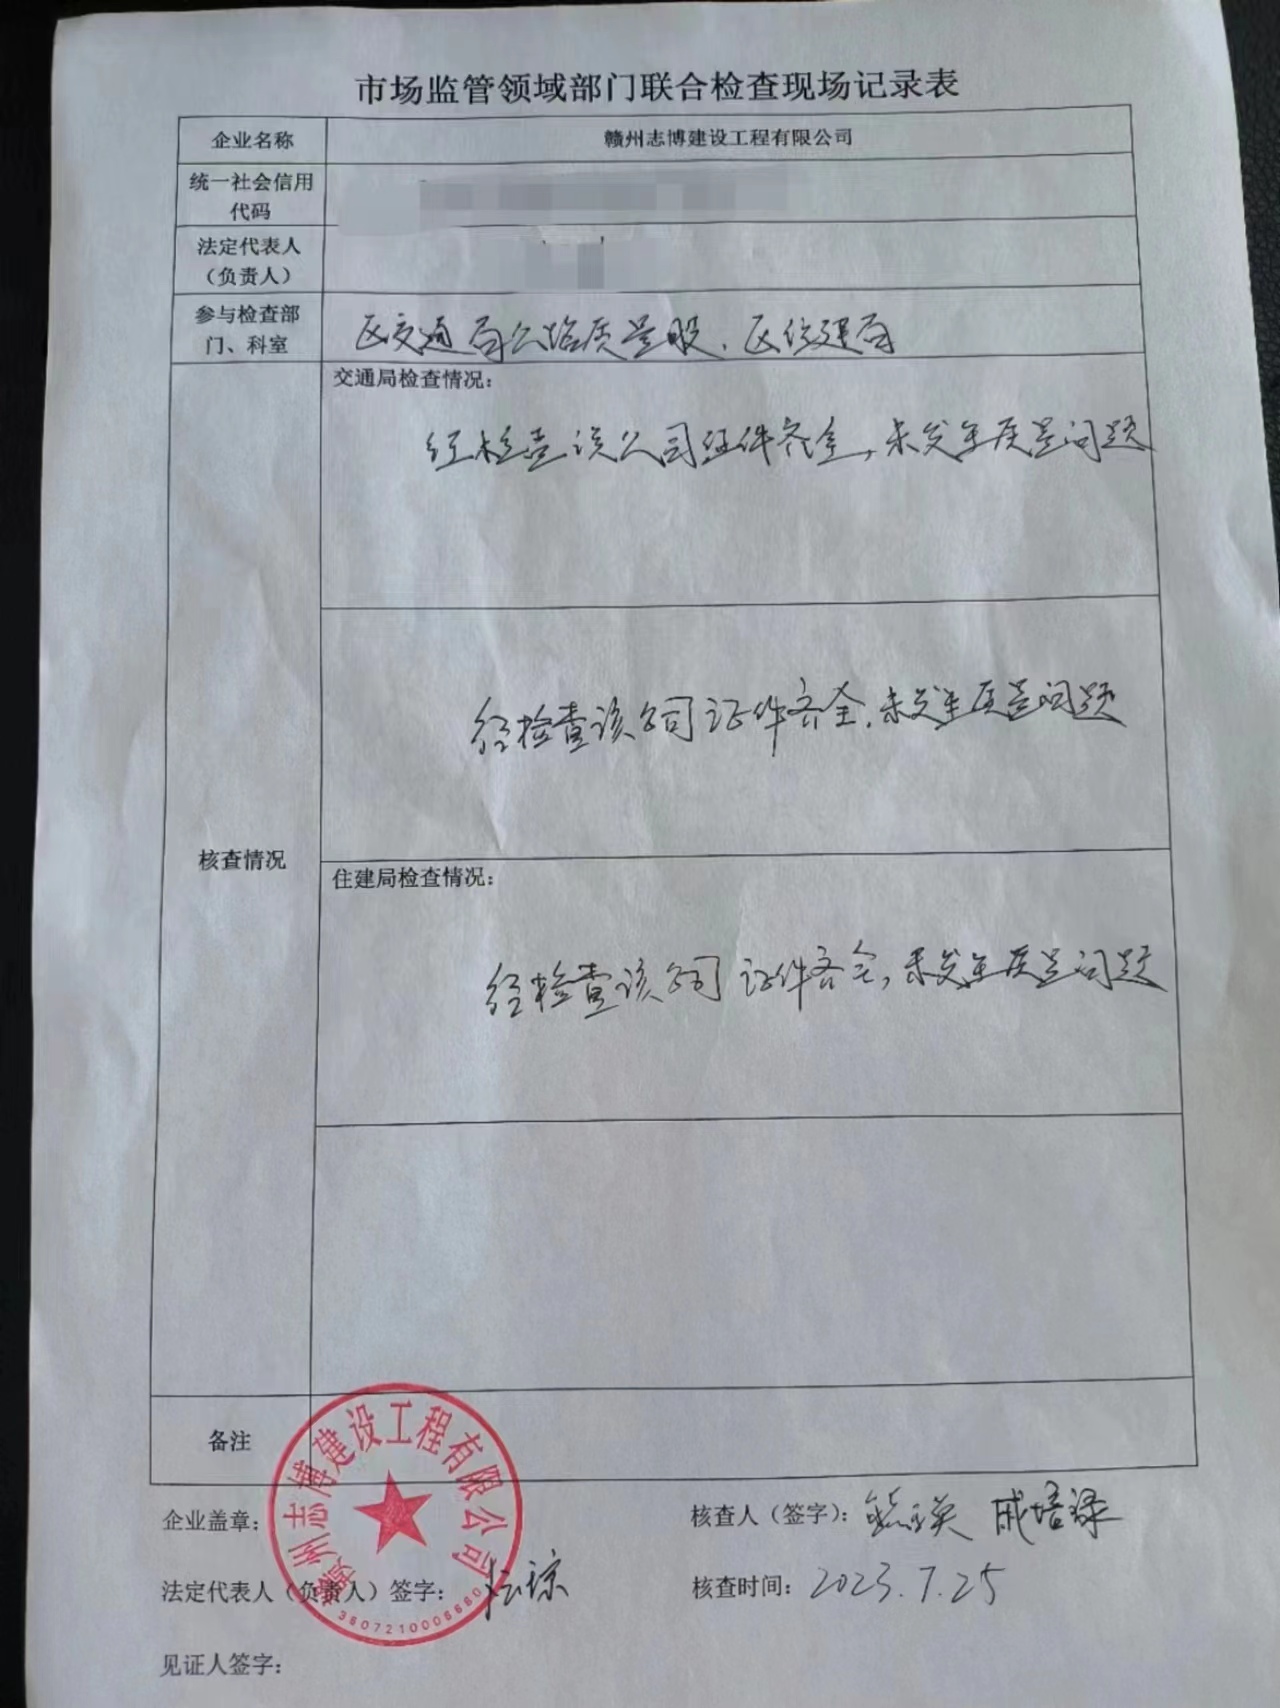 市场监管领域部门联合检查现场记录表
企业名称
赣州志博建设工程有限公司
统一社会信用
代码
法定代表人
（负责人）
参与检查部
门、科室
区交通局公路质量股、区住建局
核查情况
交通局检查情况：
经检查该公司证件齐全，未发生质量问题
经检查该公司证件齐全，未发生质量问题
住建局检查情况：
经检查该公司证件齐全，未发生质量问题
备注
企业盖章：
赣州志博建设工程有限公司
核查人（签字）：
戚培禄
法定代表人（负责人）签字：
核查时间：2023.7.25
见证人签字：